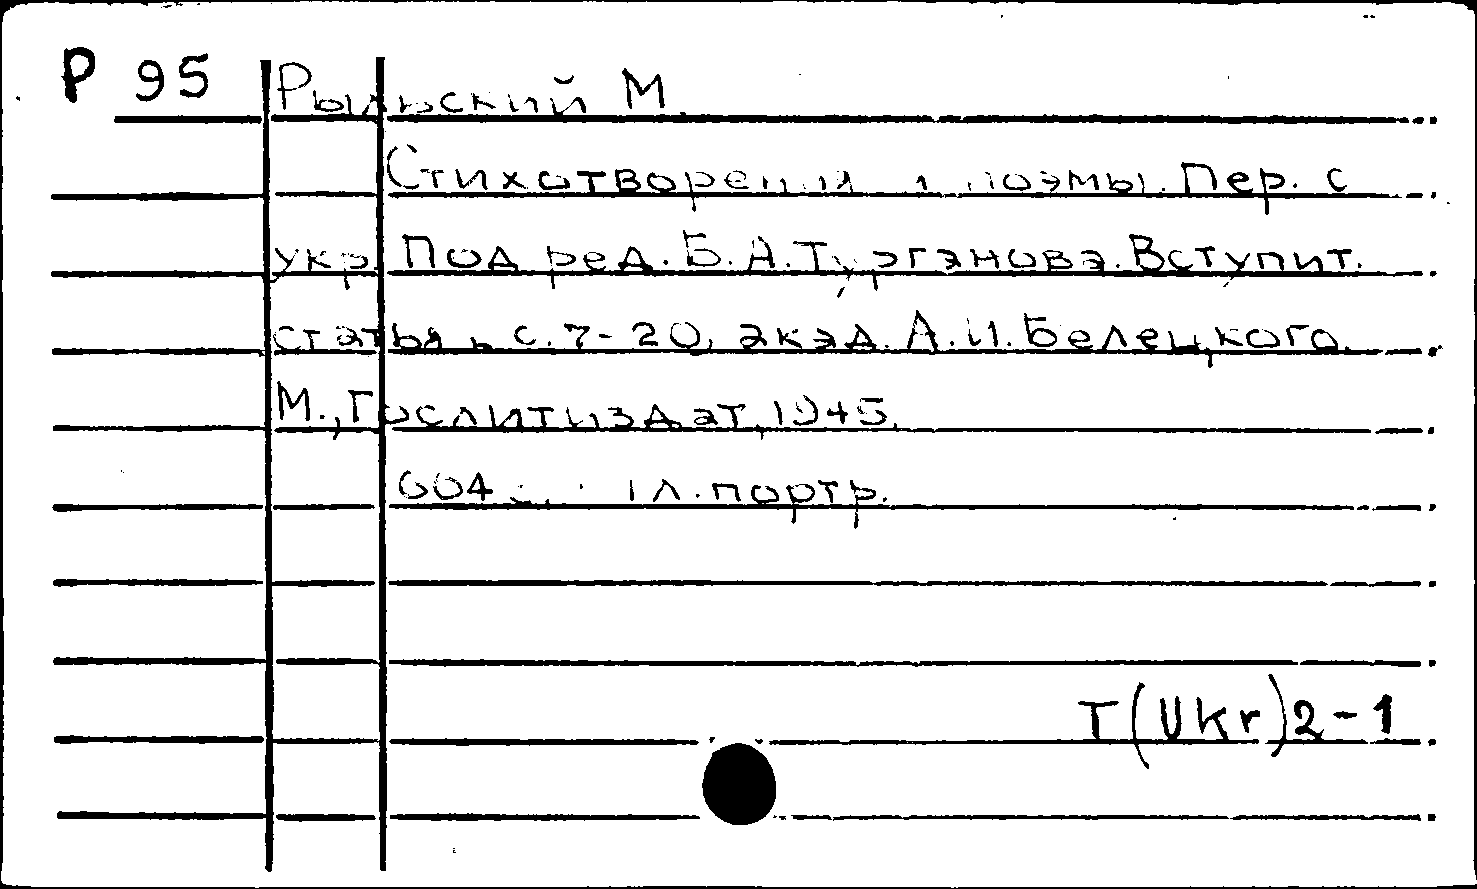 Р 95 Рыльский М.
Стихотворения и поэмы. Пер. с
укр. Под ред. Б.А.Турганова. Вступит.
статья, с. 7-20, акад. А.И.Белецкого.
М., Гослитиздат, 1945.
604 с. 1 л. портр.
T(Ukr)2-1